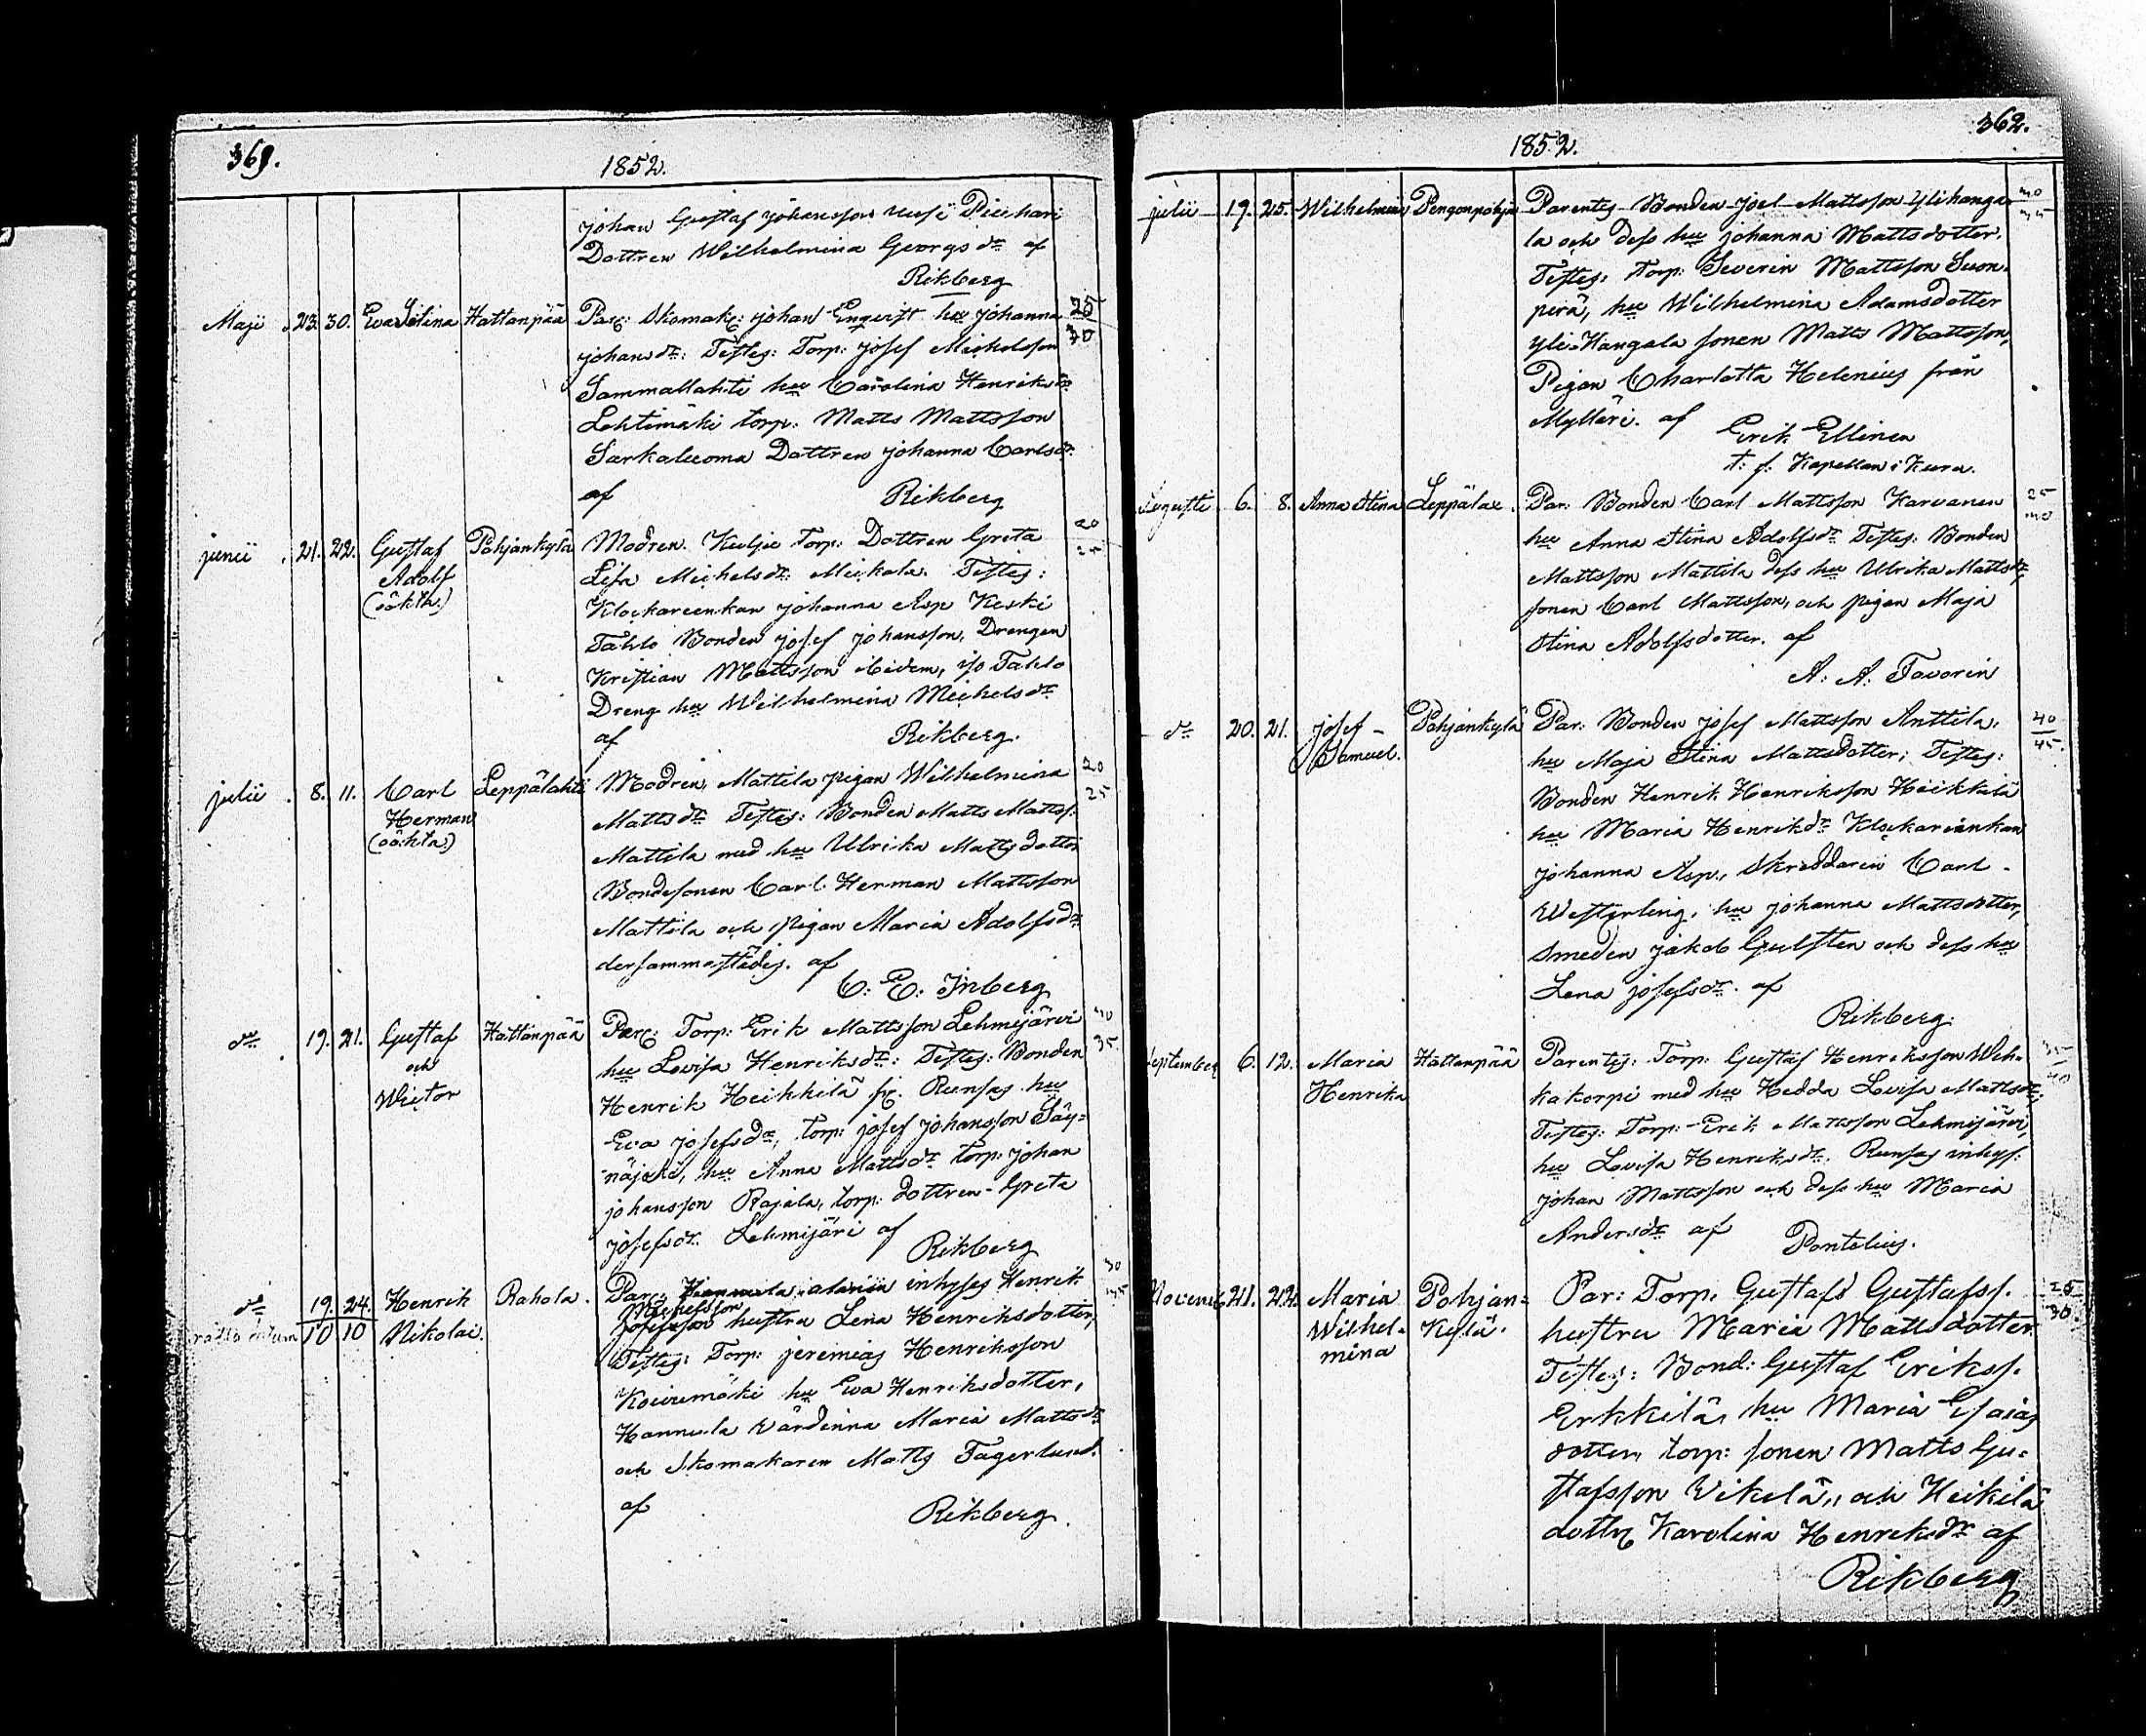 361.
1852.
Johan Gustaf Johansson
Dottren Wilhelmina Georgsdr af
Rikberg
Maji 23. 30. Eva Stina Hattanpää Par: Skomak: Johan Engvist hu Johanna 25
Johansdr: Testes: Torp: Josef Michelsson 30
Sammallahti hu Carolina Henriksdr
Lehtimäki torp. Matts Mattsson
Sarkaluoma Dottren Johanna Carlsdr.
af Rikberg
Junii 21. 22. Gustaf Pohjankylä Modren. Torp: Dottren Greta 20
Adolf Lisa Michelsdr: Mickola. Testes: 25
(oäkta) Klockareenkan Johanna Asp Keski
Tahlo Bonden Josef Johansson, Drengen
Kristian Mattsson ibidem, iso Tahlo
Dreng hu Wilhelmina Michelsdr
af Rikberg.
Julii 8. 11. Carl Leppälahti Modren, Mattila pigan Wilhelmina 20
Herman Mattsdr Testes: Bonden Matts Mattss: 25
(oäkta) Mattila med hu Ulrika Mattsdotter
Bondesonen Carl Herman Mattsson
Mattila och pigan Maria Adolfsdr
dersammastädes. af
C: E: Inberg
dr 19. 21. Gustaf Hattanpää Par: Torp: Erik Mattsson Lehmijärvi 30
och hu Lovisa Henriksdr: Testes: Bonden 35
Wictor Henrik Heikkilä fr. Runsas hu
Eva Josefsdr, torp: Josef Johansson Säy-
näjoki, hu Anna Mattsdr torp: Johan
Johansson Rajala, torp: dottren Greta
Josefsdr. Lehmijäri af
Rikberg
dr 19. 24. Henrik Rahola. Par: inhyses Henrik 30
rätta datum 10 10 Nikolai. Michelsson hustru Lena Henriksdotter,
Testes: Torp: Jeremias Henriksson
Koivumäki hu Eva Henriksdotter,
Hannula värdinna Maria Mattsdr
och Skomakaren Matts Fagerlund.
af Rikberg.
362.
1852.
Julii 19. 25. Wilhelmina Pengonpohja Parentes Bonden Joel Mattsson Ylihanga- 30
la och dess hu Johanna Mattsdotter. 35
Testes: torp: Severin Mattsson Suon-
perä, hu Wilhelmina Adamsdotter
yli-Hangala sonen Matts Mattsson,
Pigan Charlotta Helenius från
Mylläri. af
Erik Ellmen
t. f. Kapellan i Kuru.
Augusti 6. 8. Anna Stina Leppälax. Par: Bonden Carl Mattsson Karvanen 25
hu Anna Stina Adolfsdr Testes: Bonden 30
Mattsson Mattila dess hu Ulrika Mattsdr,
sonen Carl Mattsson, och pigan Maja
Stina Adolfsdotter. af
A: A: Favorin
dr 20. 21. Josef- Pohjankylä Par: Bonden Josef Mattsson Anttila. 40
Samuel. hu Maja Stina Mattsdotter; Testes: 45.
Bonden Henrik Henriksson Heikkilä
hu Maria Henriksdr Klockareenkan
Johanna Asp., Skreddaren Carl
Westerling, hu Johanna Mattsdotter,
Smeden Jakob Gulsten och dess hu
Lena Josefsdr. af
Rikberg.
September 6. 12. Maria Hattanpää Parentes: Torp: Gustaf Henriksson Weh- 35
Henrika kakorpi med hu Hedda Lovisa Mattsdr; 40
Testes: Torp: Erik Mattsson Lehmijärvi,
hu Lovisa Henriksdr. Runsas inhys:
Johan Mattsson och dess hu Maria
Andersdr af Pontelius.
Novemb 21. 22. Maria Pohjan- Par: Torp. Gustaf Gustafss. 25
Wilhel- kylä. hustru Maria Mattsdotter 30.
mina Testes: Bond: Gustaf Erikss.
Erkkilä, hu Maria Esaias
dotter, torp: sonen Matts Gu-
stafsson Vikelä, och Heikilä
dottr Karolina Henriksdr af
Rikberg